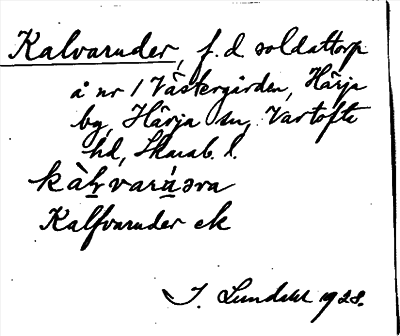 Kalvaruder, f. d. soldattorp
å nr 1 Västergården, Härja
by, Härja sn, Vartofta
hd, Skarab. l.
Kalfvaruder ek
I. Lundahl 1928.